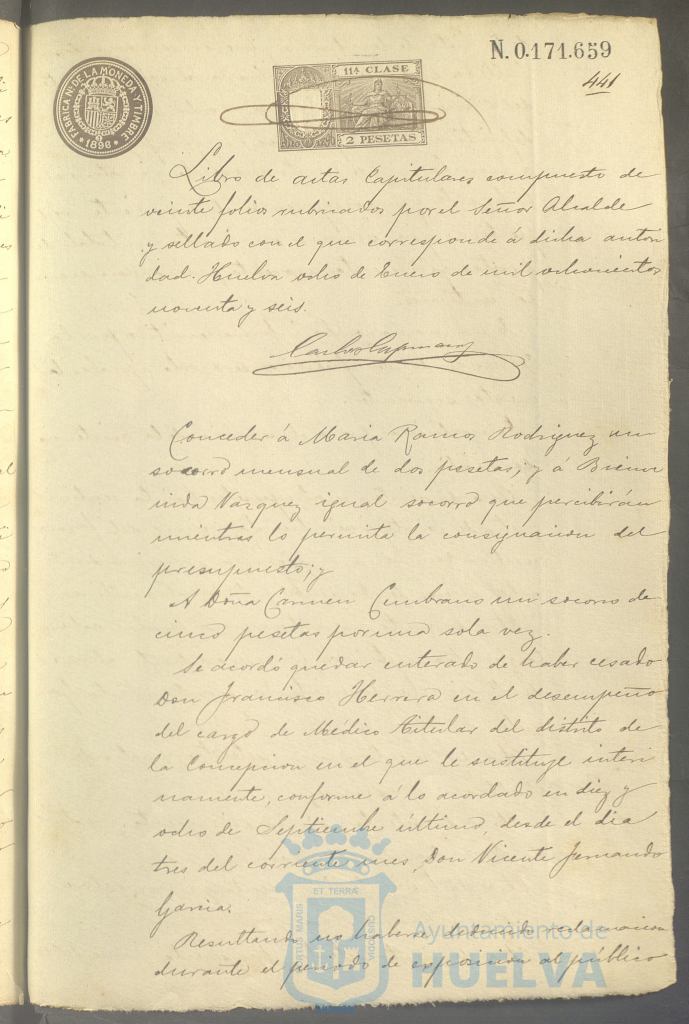 N. 0.171.659
441
FABRICA Nal DE LA MONEDA Y TIMBRE
* 1896 *
11ª CLASE
2 PESETAS
Libro de actas Capitulares compuesto de
veinte folios rubricados por el Señor Alcalde
y sellado con el que corresponde á dicha autori
dad. Huelva ocho de Enero de mil ochocientos
noventa y seis.
Carlos
Conceder á Maria Ramos Rodriguez un
socorro mensual de dos pesetas; y á Bienve
nida Vazquez igual socorro que percibirán
mientras lo permita la consignacion del
presupuesto; y
A Doña Carmen Cumbrano un socorro de
cinco pesetas por una sola vez.
Se acordó quedar enterado de haber cesado
Don Francisco Herrera en el desempeño
del cargo de Médico titular del distrito de
la Concepcion en el que le sustituye interi
namente, conforme á lo acordado en diez y
ocho de Septiembre último, desde el dia
tres del corriente mes, Don Vicente Fernando
Garcia.
Resultando no haberse deducido reclamacion
durante el periodo de exposicion al público
ET TERRÆ
PORTUS MARIS
CUSTODIA
Ayuntamiento de
HUELVA